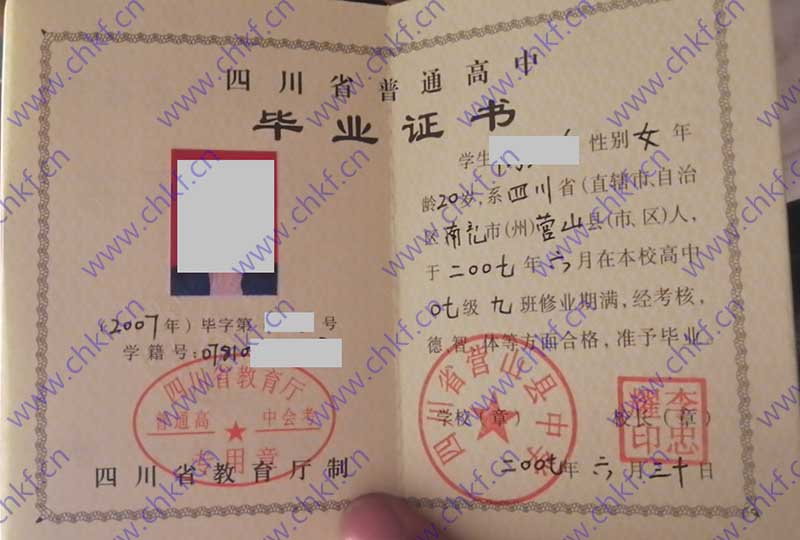 四川省普通高中
毕业证书
学生 性别女年
龄20岁,系四川省(直辖市、自治
区南充市(州)营山县(市、区)人,
于二00七年六月在本校高中
07级九班修业期满,经考核,
德、智、体等方面合格,准予毕业
(2007年)毕字第 号
学籍号:07810
四川省教育厅
普通高 中会考
专用章
四川省教育厅制
四川省营山县中学
学校(章)
校长(章)
李忠
印
二00七年六月三十日
www.chkf.cn